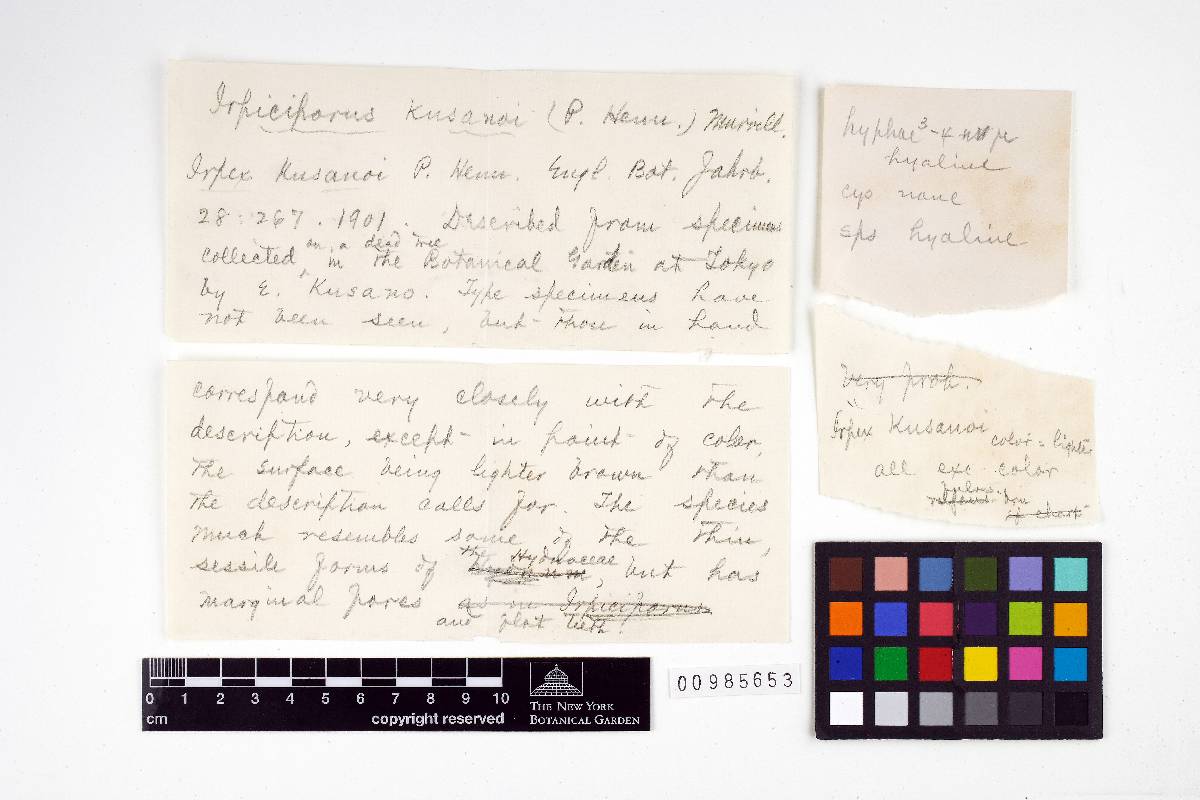 Irpiciporus Kusanoi (P. Henn.) Murrill.
Irpex Kusanoi P. Henn. Engl. Bot. Jahrb.
28: 267. 1901. Described from specimens
on a dead tree
collected in the Botanical Garden at Tokyo
by E. Kusano. Type specimens have
not been seen, but those in hand
correspond very closely with the
description, except in point of color,
the surface being lighter brown than
the description calls for. The species
much resembles some of the thin,
the Hydnaceae
sessile forms of , but has
marginal pores as in Irpiciporus
and flat teeth.
hyphae 3-4 µ
hyaline
cys none
sps hyaline
Very prob.
Irpex Kusanoi color = lighter
all exc color
0 1 2 3 4 5 6 7 8 9 10
cm
copyright reserved
THE NEW YORK
BOTANICAL GARDEN
00985653